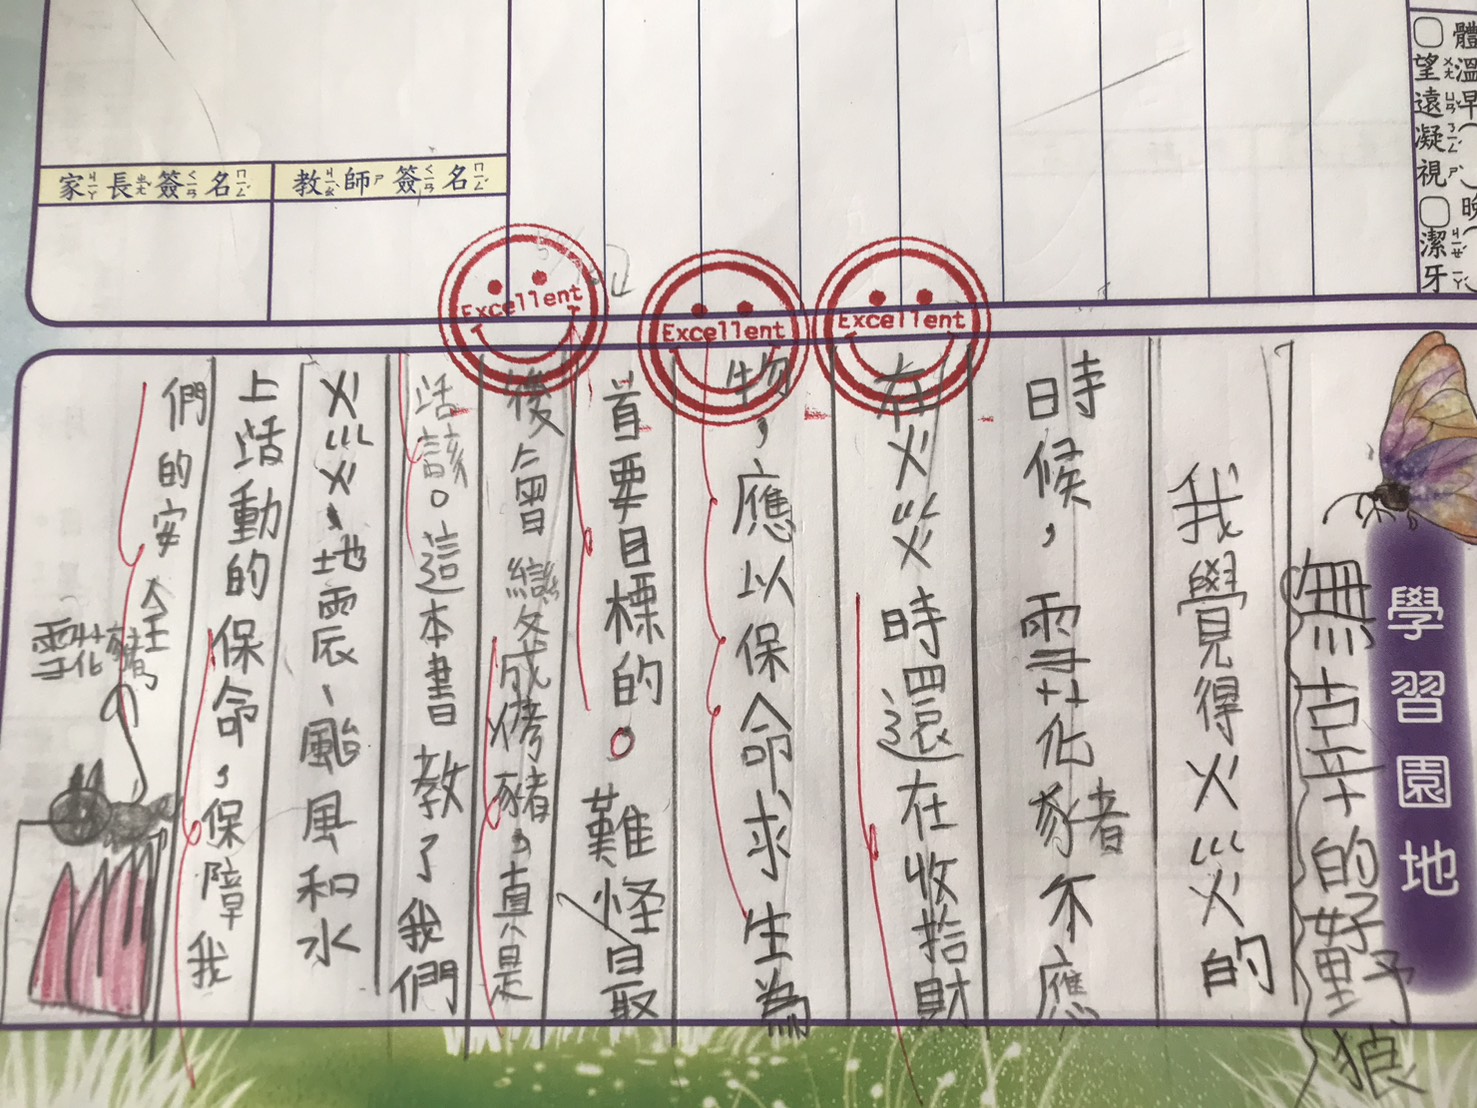 體溫早(
晚(
望遠凝視
潔牙
教師簽名
家長簽名
Excellent
Excellent
Excellent
學習園地
無辜的野狼
我覺得火災的
時候，雪花豬不應
在火災時還在收拾財
物，應以保命求生為
首要目標的。難怪最
後會變成烤豬，真是
活該。這本書教了我們
火災、地震、颱風和水
上活動的保命，保障我
們的安全。
雪花豬